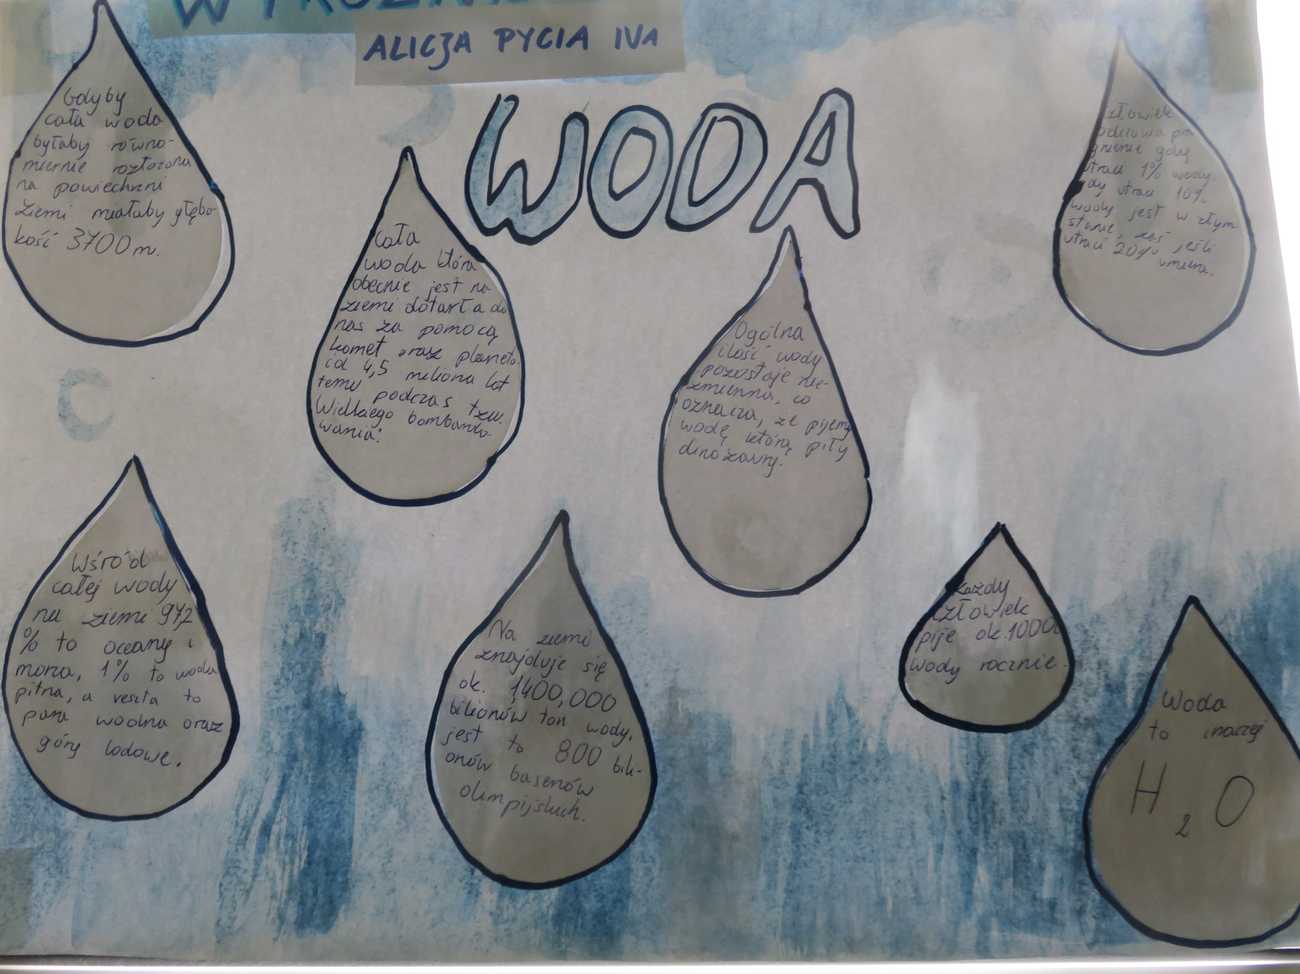 ALICJA PYCIA IVA
WODA
Gdyby
cała woda
byłaby równo-
miernie rozłożona
na powiechrzni
ziemi miałaby głębo-
kość 3700 m.
Cała
woda która
obecnie jest na
ziemi dotarła do
nas za pomocą
komet oraz planeto-
id 4,5 miliona lat
temu podczas tzw.
Wielkiego bombardo-
wania.
Ogólna
ilość wody
pozostaje nie-
zmienna, co
oznacza, że pijemy
wodę którą piły
dinozaury.
człowiek
odczuwa pra-
gnienie gdy
utraci 1% wody,
gdy utraci 10%
wody jest w złym
stanie, zaś jeśli
utraci 20% umiera.
Wśród
całej wody
na ziemi 97,2
% to oceany i
morza, 1% to woda
pitna, a reszta to
para wodna oraz
góry lodowe.
Na ziemi
znajduje się
ok. 1400,000
bilionów ton wody,
jest to 800 bili-
onów basenów
olimpijskich.
każdy
człowiek
pije ok. 1000l
wody rocznie.
Woda
to inaczej
H2O